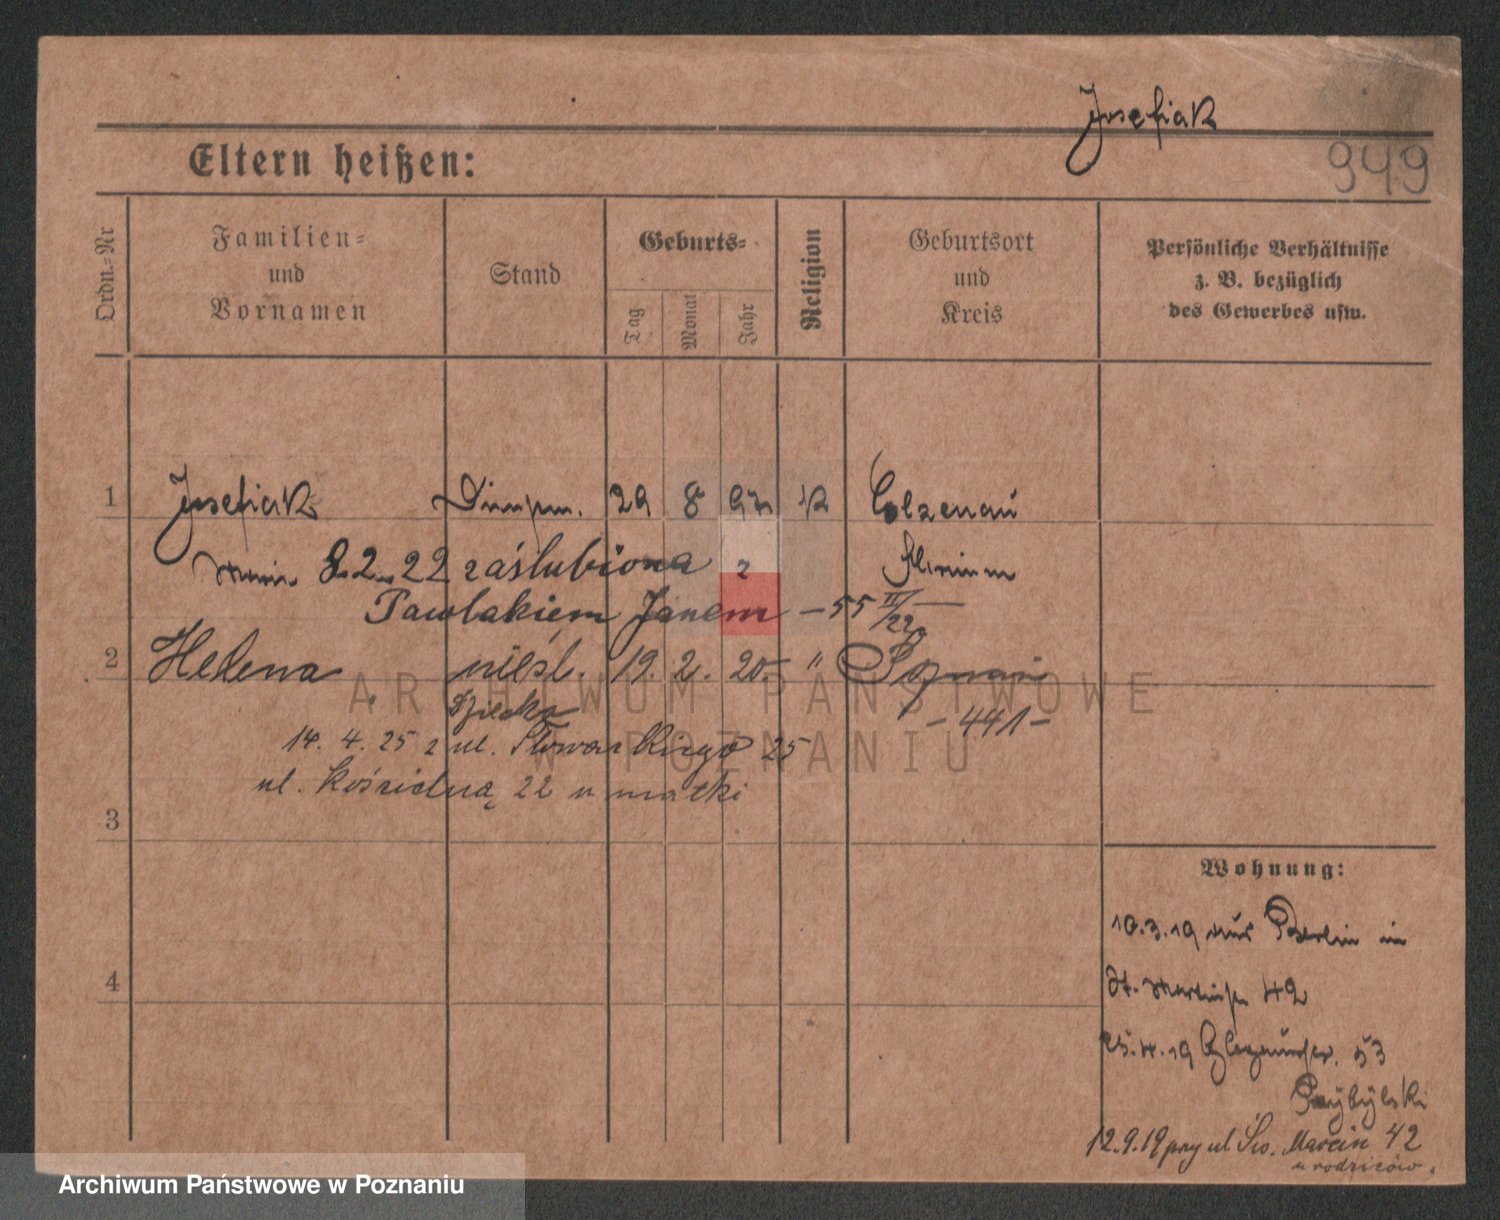 Josefiak
949
Eltern heißen:
Ordn.-Nr
Familien-
und
Vornamen
Stand
Geburts-
Tag
Monat
Jahr
Religion
Geburtsort
und
Kreis
Persönliche Verhältnisse
z. B. bezüglich
des Gewerbes usw.
1 Josefiak 29 8 97 K
8.2.22 zaślubiona z
Pawlakiem Janem -55 II/22
2 Helena nieśl. 19. 2. 20. " Poznań
dziecko -441-
14. 4. 25 z ul. Słowackiego 25
ul. Kościelną 22 u matki
3
4
Wohnung:
10.3.19 aus Berlin in
St. Martinstr 42
25.4.19 53
Przybylski
12.9.19 przy ul Św. Marcin 42
u rodziców.
ARCHIWUM PAŃSTWOWE
W POZNANIU
Archiwum Państwowe w Poznaniu